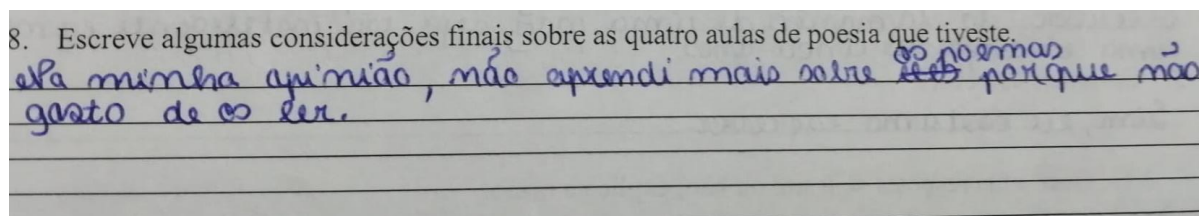 8. Escreve algumas considerações finais sobre as quatro aulas de poesia que tiveste.
Na minha opinião, não aprendi mais sobre os poemas porque não
gosto de os ler.